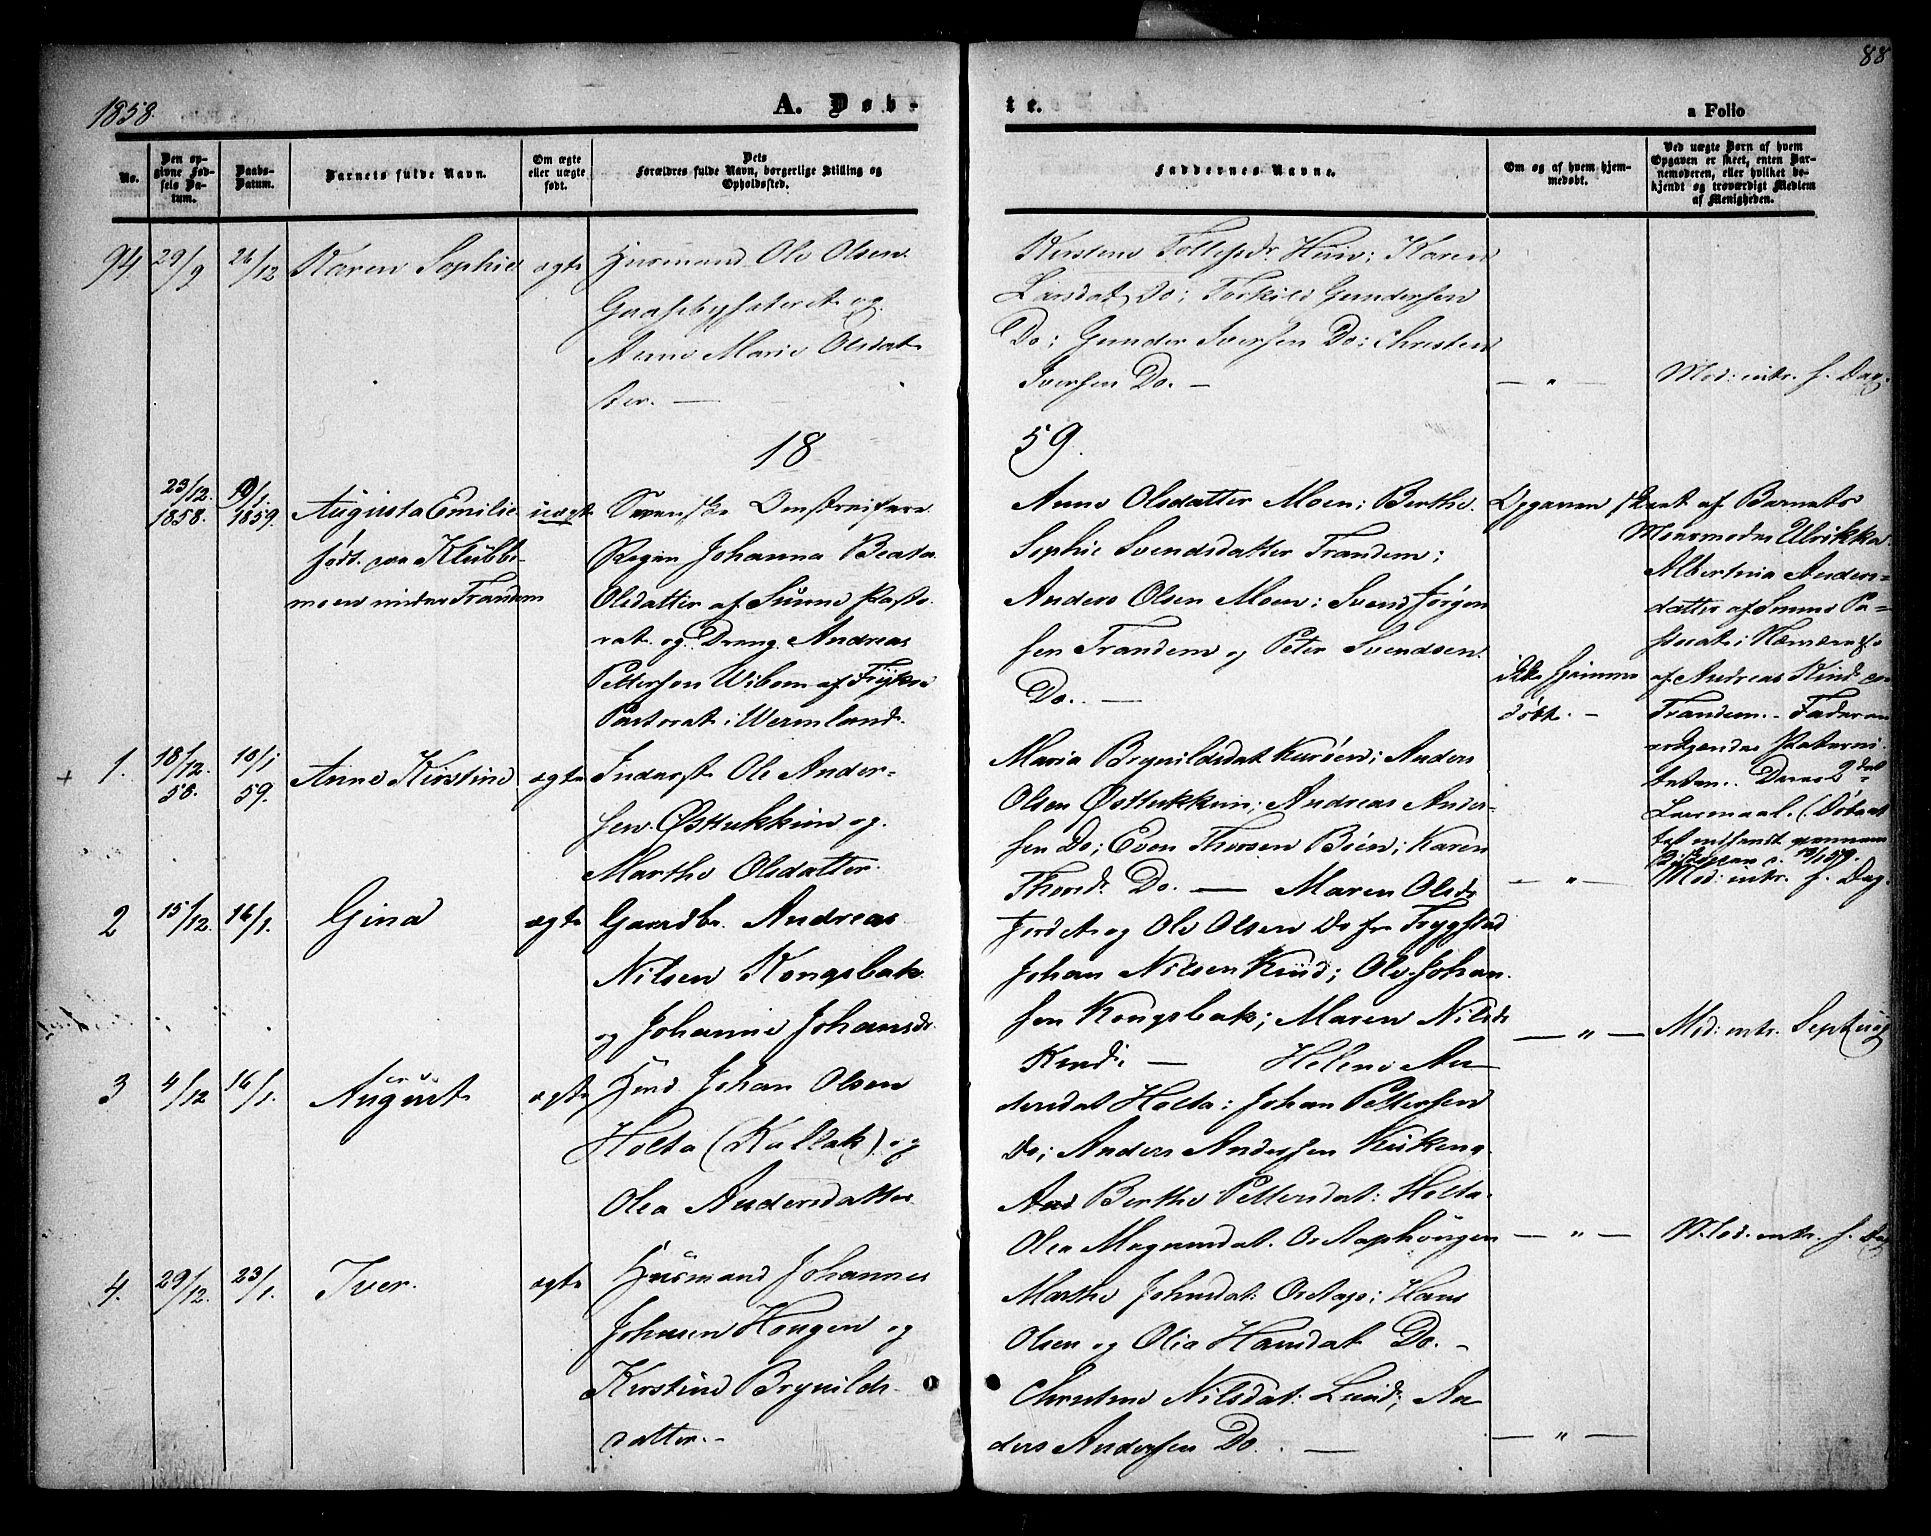 1858.
A. Døb-
te.
a Folio
88
No.
Den op-
givne Fød-
sels Da-
tum.
Daabs-
Datum.
Barnets fulde Navn.
Om ægte
eller uægte
født.
Dets
Forældres fulde Navn, borgerlige Stilling og
Opholdssted.
Faddernes Navne.
Om og af hvem hjem-
medøbt.
Ved uægte Børn af hvem
Opgaven er skeet, enten Bar-
nemoderen, eller hvilket be-
kjendt og troværdigt Medlem
af Menigheden.
94. 29/9 26/12 Karen Sophie ægte Huusmand Ole Olsen
Graasbyseteret og
Anne Marie Olsdat
ter. —
Kirsten Tollefsdr Huus; Karen
Larsdat Do; Torkild Gundersen
Do; Gunder Iversen Do; Christen
Iversen Do. —
— " — Mod: intr. s. Dag.
18
59.
23/12. 1858. 10/1. 1859. Augusta Emilie
født paa Klubbe-
moen under Trandem
uægte
Svenske
Pigen Johanna Beata
Olsdatter af Sunne Pasto-
rat og Dreng Andreas
Pettersen Wibom af Frykse
Pastorat i Wermland.
Anne Olsdatter Moen; Berthe
Sophie Svendsdatter Trandem;
Anders Olsen Moen; Svend Jørgen
sen Trandem og Peter Svendsen
Do. —
Opgaven skeet af Barnets
Mormoder Ulrikka
Albertina Anders-
datter af Sunne Pa-
storat i
af Andreas Kind
Trandem. - Faderen
Paterni
teten. Deres 2det
Leiermaal. (Døbeat
test
ikke hjemme
døbt. -
+ 1. 18/12. 58. 10/1 59. Anne Kirstine ægte Inderst Ole Ander-
sen Østukkim og
Marthe Olsdatter.
Maria Brynildsdat Kuröen; Anders
Olsen Østukkim; Andreas Ander-
sen Do; Even Thorsen Böen; Karen
Thorsdr Do. —
— " — Mod: intr. s. Dag.
2 15/12. 16/1. Gina ægte Gaardbr. Andreas
Nilsen Kongsbak
og Johanne Johansdr.
Maren Olsdr
Jordet og Ole Olsen Do fra Trygstad
Johan Nilsen Kind; Ole Johan
sen Kongsbak; Maren Nilsdr
Kind. —
— " — Mod: intr.
3 4/12 16/1. August ægte Huusmd Johan Olsen
Holta (Kallak) og
Olea Andersdatter
Helene An
dersdat Holta; Johan Pettersen
Do; Anders Andersen Kirkeng
And Berthe Pettersdat: Holta.
Olea Magnusdat.
— " — Mod. intr. s. Dag
4. 29/12. 23/1. Iver. ægte Huusmand Johannes
Johnsen Hougen og
Kirstine Brynilds-
datter. -
Marthe Johnsdat: ; Hans
Olsen og Olia Hansdat Do. -
Christine Nilsdat: Lund; An
ders Andersen Do. —
— " —